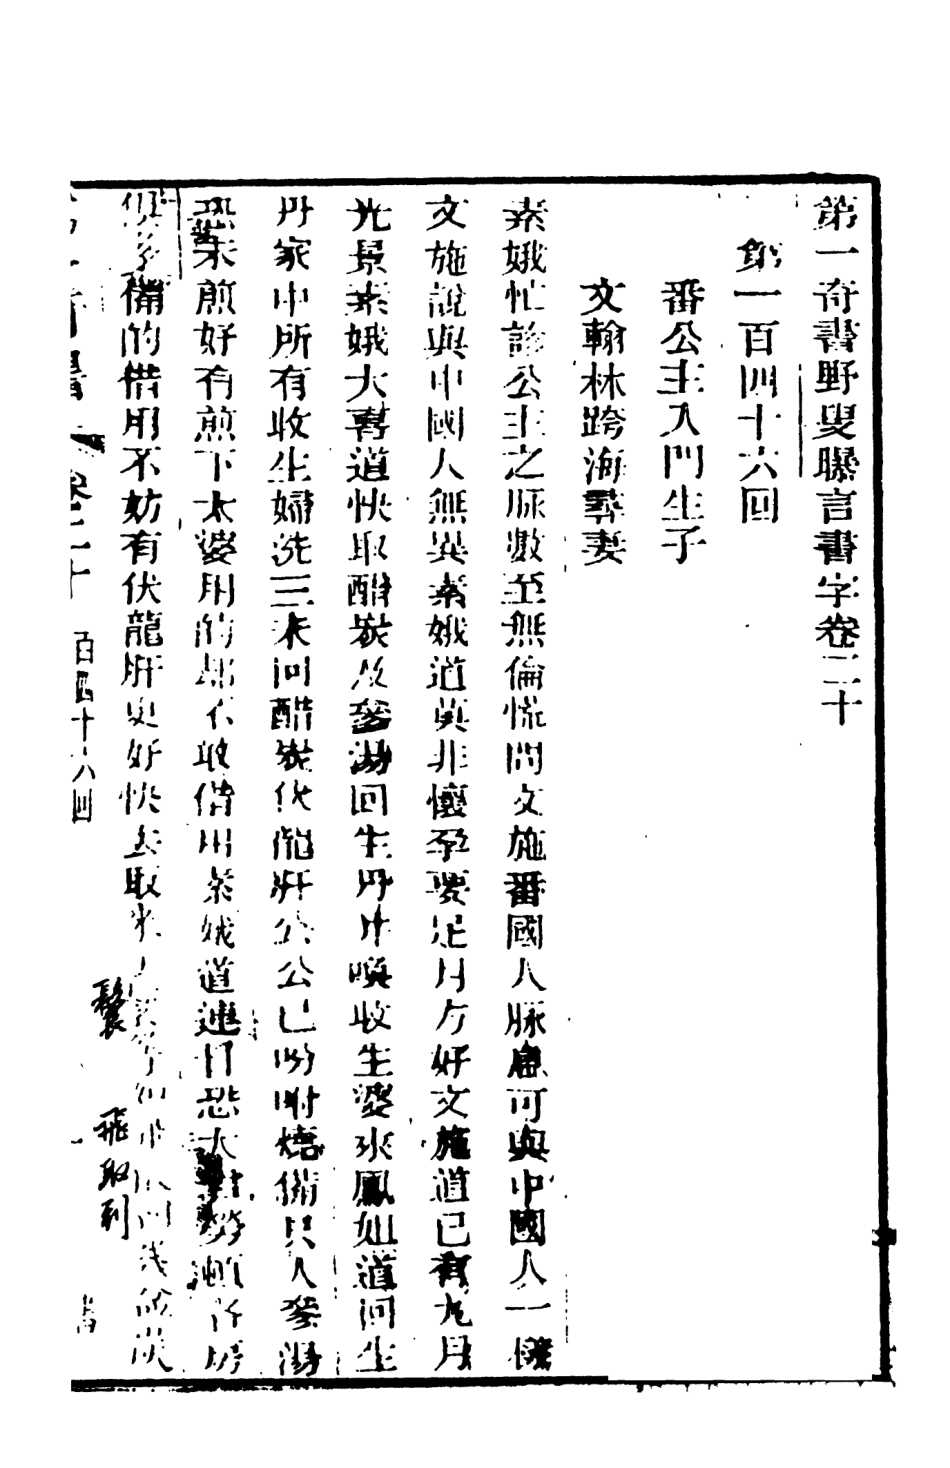 第一奇書野叟曝言書字卷二十
第一百四十六回
番公主入門生子
文翰林跨海尋妻
素娥忙診公主之脈數至無倫慌問文施番國人脈息可與中國人一樣
文施說與中國人無異素娥道莫非懷孕要足月方好文施道已有九月
光景素娥大喜道快取醋炭及參湯回生丹來喚收生婆來鳳姐道回生
丹家中所有收生婦洗三未回醋炭伏龍肝公公已吩咐燒備只人參湯
恐未煎好有煎下太婆用的都不敢借用素娥道連日恐太勞頓各房
俱備的借用不妨有伏龍肝更好快去取來
卷二十 百四十六回
鬟
飛取到